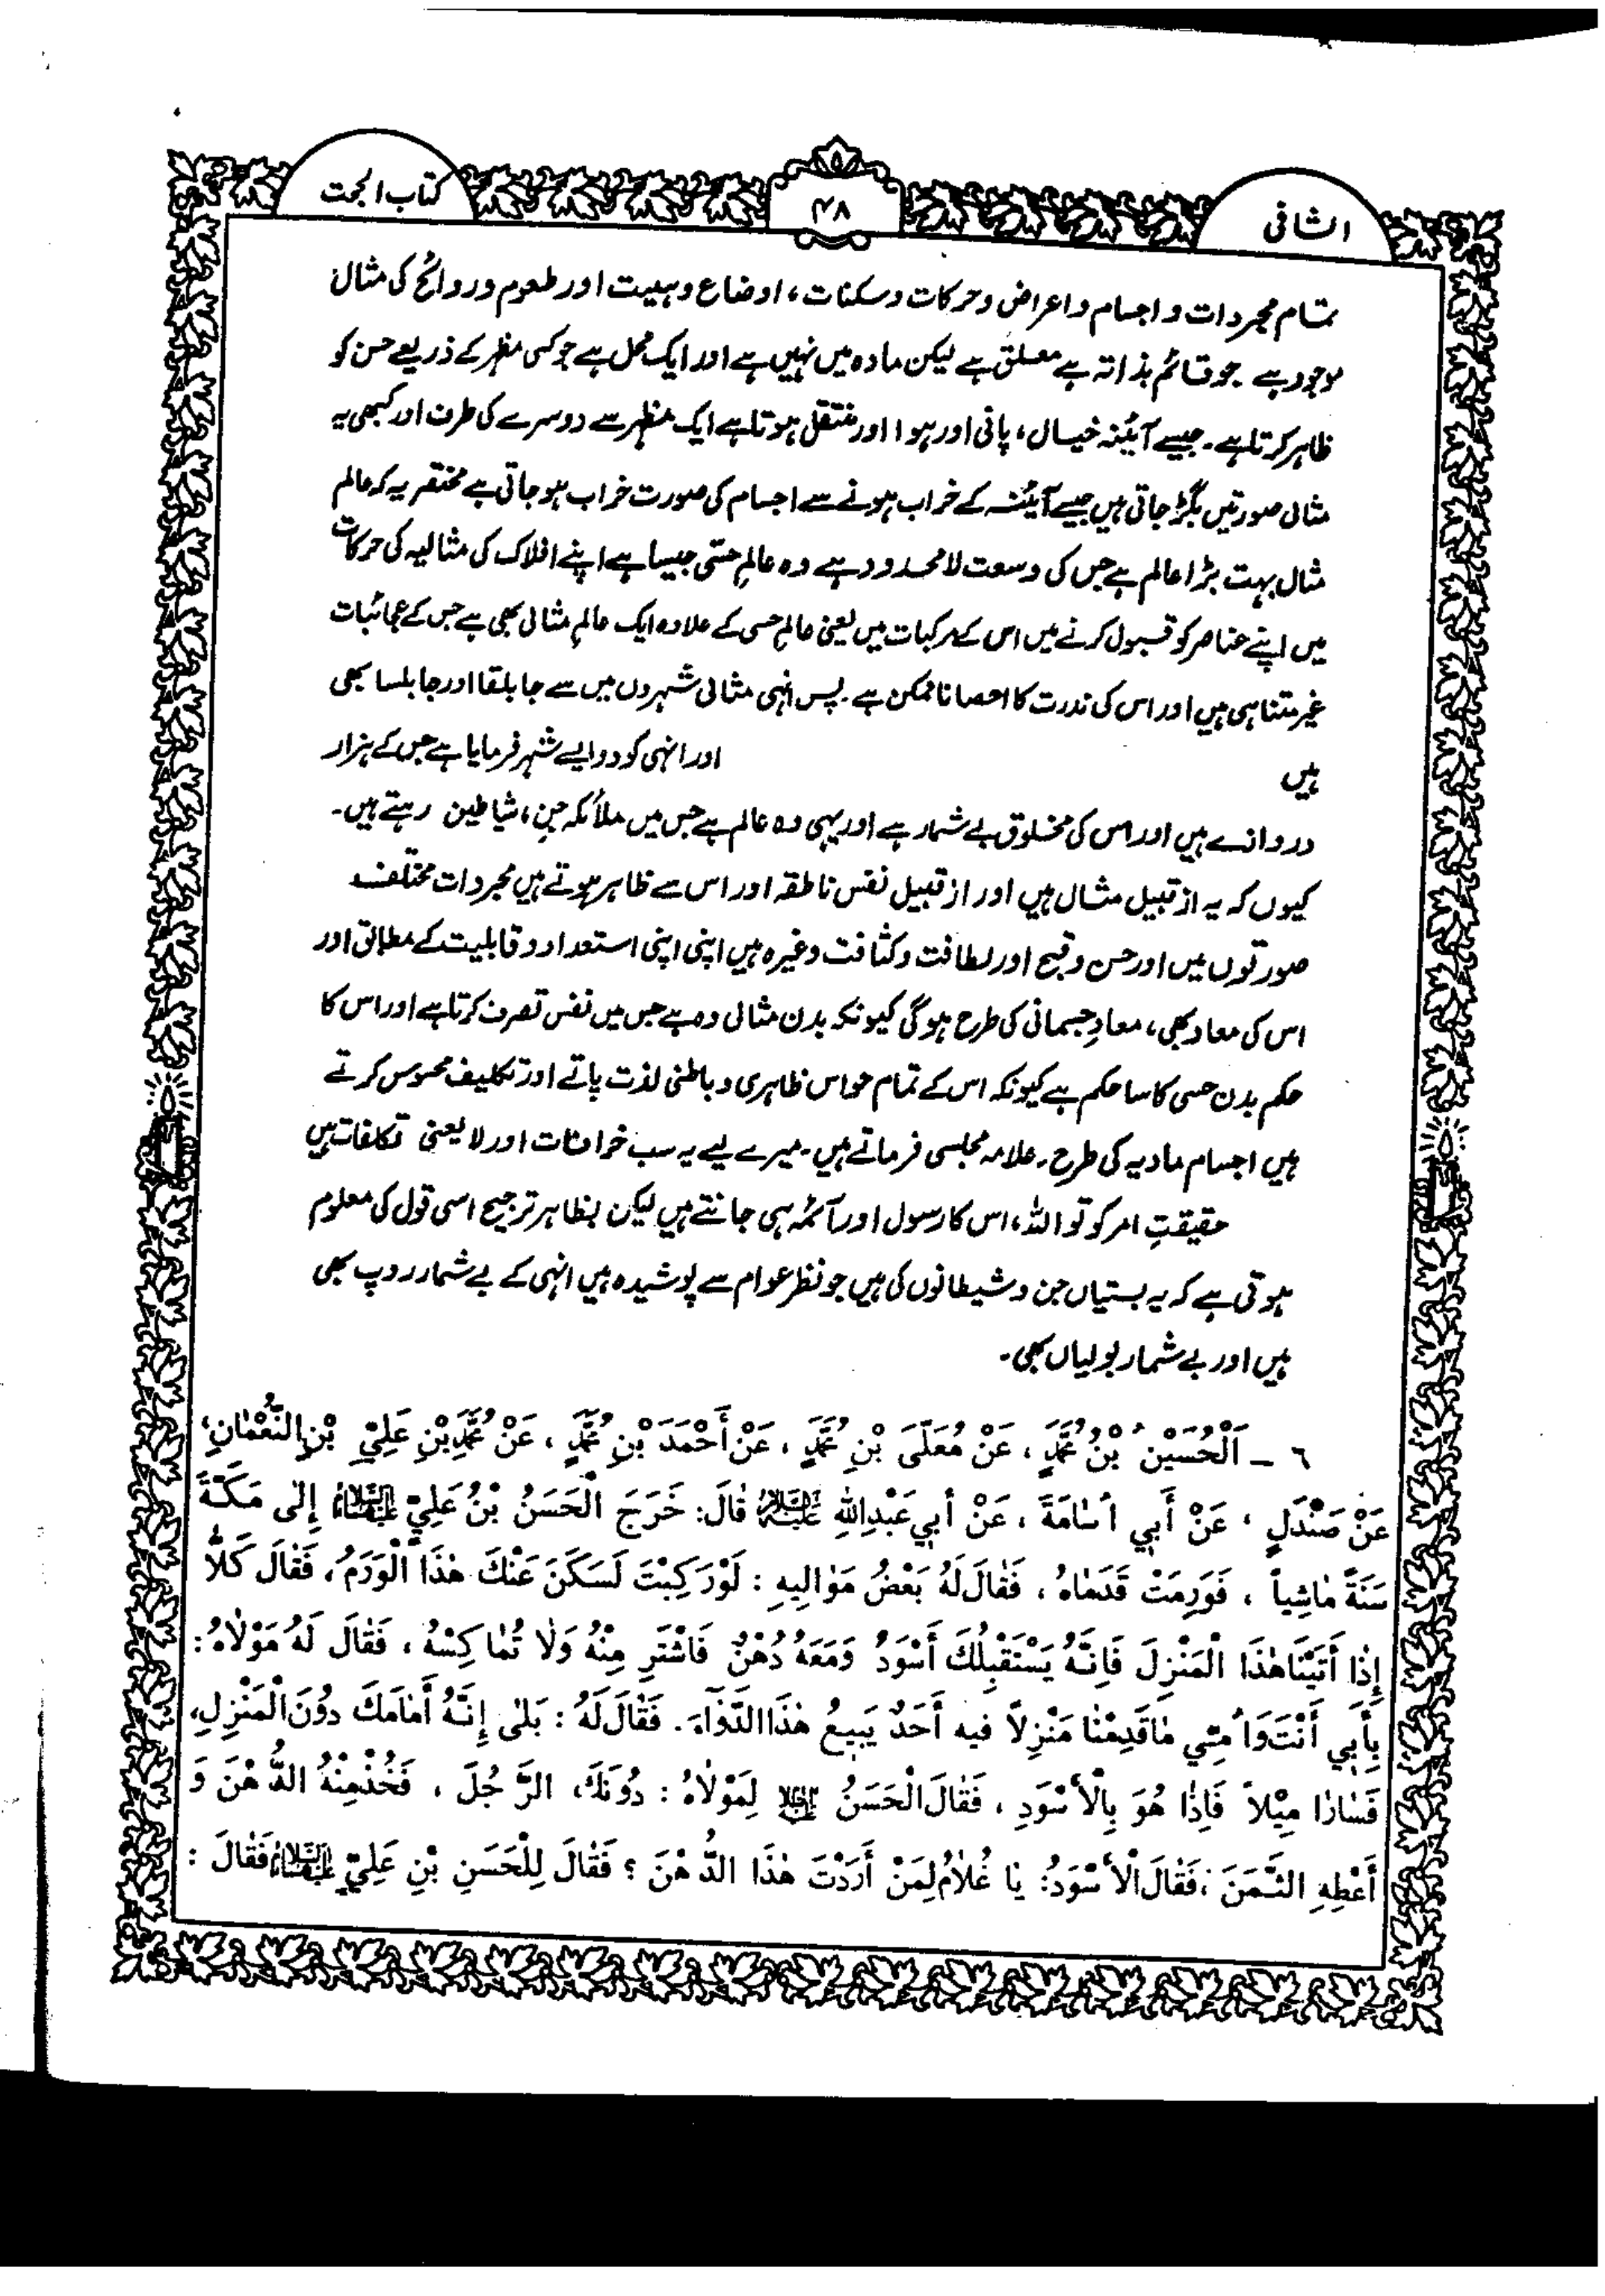 الشافی
۴۸
کتاب الحجت
تمام مجردات و اجسام و اعراض و حرکات و سکنات، اوضاع و ہیبت اور طعوم و روائح کی مثال
موجود ہے جو قائم بذاتہ ہے معلق ہے لیکن مادہ میں نہیں ہے اور ایک محل ہے جو کسی مظہر کے ذریعے حسن کو
ظاہر کرتا ہے۔ جیسے آئینہ خیال، پانی اور ہوا اور منتقل ہوتا ہے ایک مظہر سے دوسرے کی طرف اور کبھی یہ
مثالی صورتیں بگڑ جاتی ہیں جیسے آئینہ کے خراب ہونے سے اجسام کی صورت خراب ہو جاتی ہے مختصر یہ کہ عالم
مثال بہت بڑا عالم ہے جس کی وسعت لا محدود ہے وہ عالم حسّی جیسا ہے اپنے افلاک کی مثالیہ کی حرکات
میں اپنے عناصر کو قبول کرنے میں اس کے مرکبات میں یعنی عالم حسی کے علاوہ ایک عالم مثالی بھی ہے جس کے عجائبات
غیر متناہی ہیں اور اس کی ندرت کا احصا ناممکن ہے۔ پس انہی مثالی شہروں میں سے جابلقا اور جابلسا بھی
ہیں اور انہی کو دو ایسے شہر فرمایا ہے جس کے ہزار
دروازے ہیں اور اس کی مخلوق بے شمار ہے اور یہی وہ عالم ہے جس میں ملائکہ جن، شیاطین رہتے ہیں۔
کیوں کہ یہ از قبیل مثال ہیں اور از قبیل نفس ناطقہ اور اس سے ظاہر ہوتے ہیں مجردات مختلف
صورتوں میں اور حسن و قبح اور لطافت و کثافت وغیرہ میں اپنی اپنی استعداد و قابلیت کے مطابق اور
اس کی معاد بھی، معادِ جسمانی کی طرح ہوگی کیونکہ بدن مثالی وہ ہے جس میں نفس تصرف کرتا ہے اور اس کا
حکم بدن حسی کا سا حکم ہے کیونکہ اس کے تمام حواس ظاہری و باطنی لذت پاتے اور تکلیف محسوس کرتے
ہیں اجسام مادیہ کی طرح۔ علامہ مجلسی فرماتے ہیں۔ میرے لیے یہ سب خرافات اور لا یعنی تکلفات ہیں
حقیقتِ امر کو تو اللہ، اس کا رسول اور آئمہ ہی جانتے ہیں لیکن بظاہر ترجیح اسی قول کی معلوم
ہوتی ہے کہ یہ بستیاں جن و شیطانوں کی ہیں جو نظر عوام سے پوشیدہ ہیں انہی کے بے شمار روپ بھی
ہیں اور بے شمار بولیاں بھی۔
٦ ـ اَلْحُسَيْنُ بْنُ مُحَمَّدٍ ، عَنْ مُعَلَّى بْنِ مُحَمَّدٍ ، عَنْ أَحْمَدَ بْنِ مُحَمَّدٍ ، عَنْ مُحَمَّدِ بْنِ عَلِيِّ بْنِ النُّعْمَانِ،
عَنْ صَنْدَلٍ ، عَنْ أَبِي أُسَامَةَ ، عَنْ أَبِي عَبْدِاللهِ عَلَيْهِ السَّلَامُ قَالَ: خَرَجَ الْحَسَنُ بْنُ عَلِيٍّ عَلَيْهِمَا السَّلَامُ إِلَى مَكَّةَ
سَنَةً مَاشِياً ، فَوَرِمَتْ قَدَمَاهُ ، فَقَالَ لَهُ بَعْضُ مَوَالِيهِ : لَوْ رَكِبْتَ لَسَكَنَ عَنْكَ هٰذَا الْوَرَمُ، فَقَالَ كَلَّا
إِذَا أَتَيْنَا هٰذَا الْمَنْزِلَ فَإِنَّهُ يَسْتَقْبِلُكَ أَسْوَدُ وَمَعَهُ دُهْنٌ فَاشْتَرِ مِنْهُ وَلَا تُمَاكِسْهُ ، فَقَالَ لَهُ مَوْلَاهُ :
بِأَبِي أَنْتَ وَاُمِّي مَا قَدِمْنَا مَنْزِلاً فِيهِ أَحَدٌ يَبِيعُ هٰذَا الدَّوَاءَ. فَقَالَ لَهُ : بَلَى إِنَّهُ أَمَامَكَ دُونَ الْمَنْزِلِ،
فَسَارَا مِيْلاً فَإِذَا هُوَ بِالْأَسْوَدِ ، فَقَالَ الْحَسَنُ عَلَيْهِ السَّلَامُ لِمَوْلَاهُ : دُونَكَ الرَّجُلَ ، فَخُذْ مِنْهُ الدُّهْنَ وَ
أَعْطِهِ الثَّمَنَ ، فَقَالَ الْأَسْوَدُ: يَا غُلَامُ لِمَنْ أَرَدْتَ هٰذَا الدُّهْنَ ؟ فَقَالَ لِلْحَسَنِ بْنِ عَلِيٍّ عَلَيْهِمَا السَّلَامُ فَقَالَ :